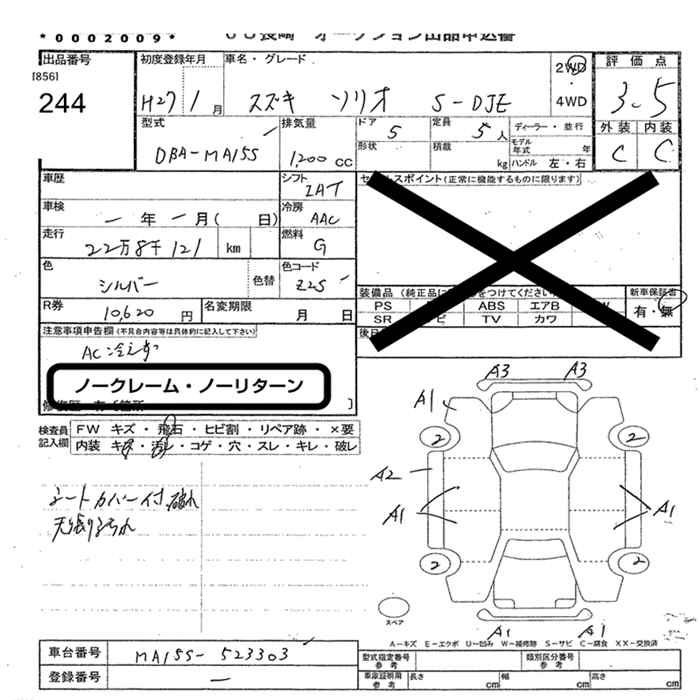 *0002009* オークション出品申込書
出品番号 初度登録年月 車名・グレード 2WD・4WD 評価点
[856]
244 H27 1月 スズキ ソリオ S-DJE 3.5
型式 排気量 ドア 5 定員 5人 ディーラー・並行 外装 内装
DBA-MA15S 1,200cc 形状 積載 kg モデル年式 年 C C
ハンドル 左・右
車歴 シフト IAT セールスポイント(正常に機能するものに限ります)
車検 一年一月( 日) 冷房 AAC
走行 22万8千121 km 燃料 G
色 シルバー 色替 色コード Z2S
装備品 (純正品に をつけてください 新車保証書
PS ABS エアB W 有・無
SR ビ TV カワ
R券 10,620円 名変期限 月 日 後日
注意事項申告欄(不具合内容等は具体的に記入して下さい)
AC冷えず
ノークレーム・ノーリターン
検査員記入欄 FW キズ・飛石・ヒビ割・リペア跡・×要
内装 キズ・汚レ・コゲ・穴・スレ・キレ・破レ
シートカバー付 破れ
天張り汚れ
A3 A3
A1
2 2
A2
A1 A1
2 2
スペア
A1 A1
A−キズ E−エクボ U−凹み W−補修跡 S−サビ C−腐食 XX−交換済
車台番号 MA15S-523303
登録番号 ー
型式指定番号 参考 類別区分番号 参考
車庫証明用 参考 長さ cm 幅 cm 高さ cm